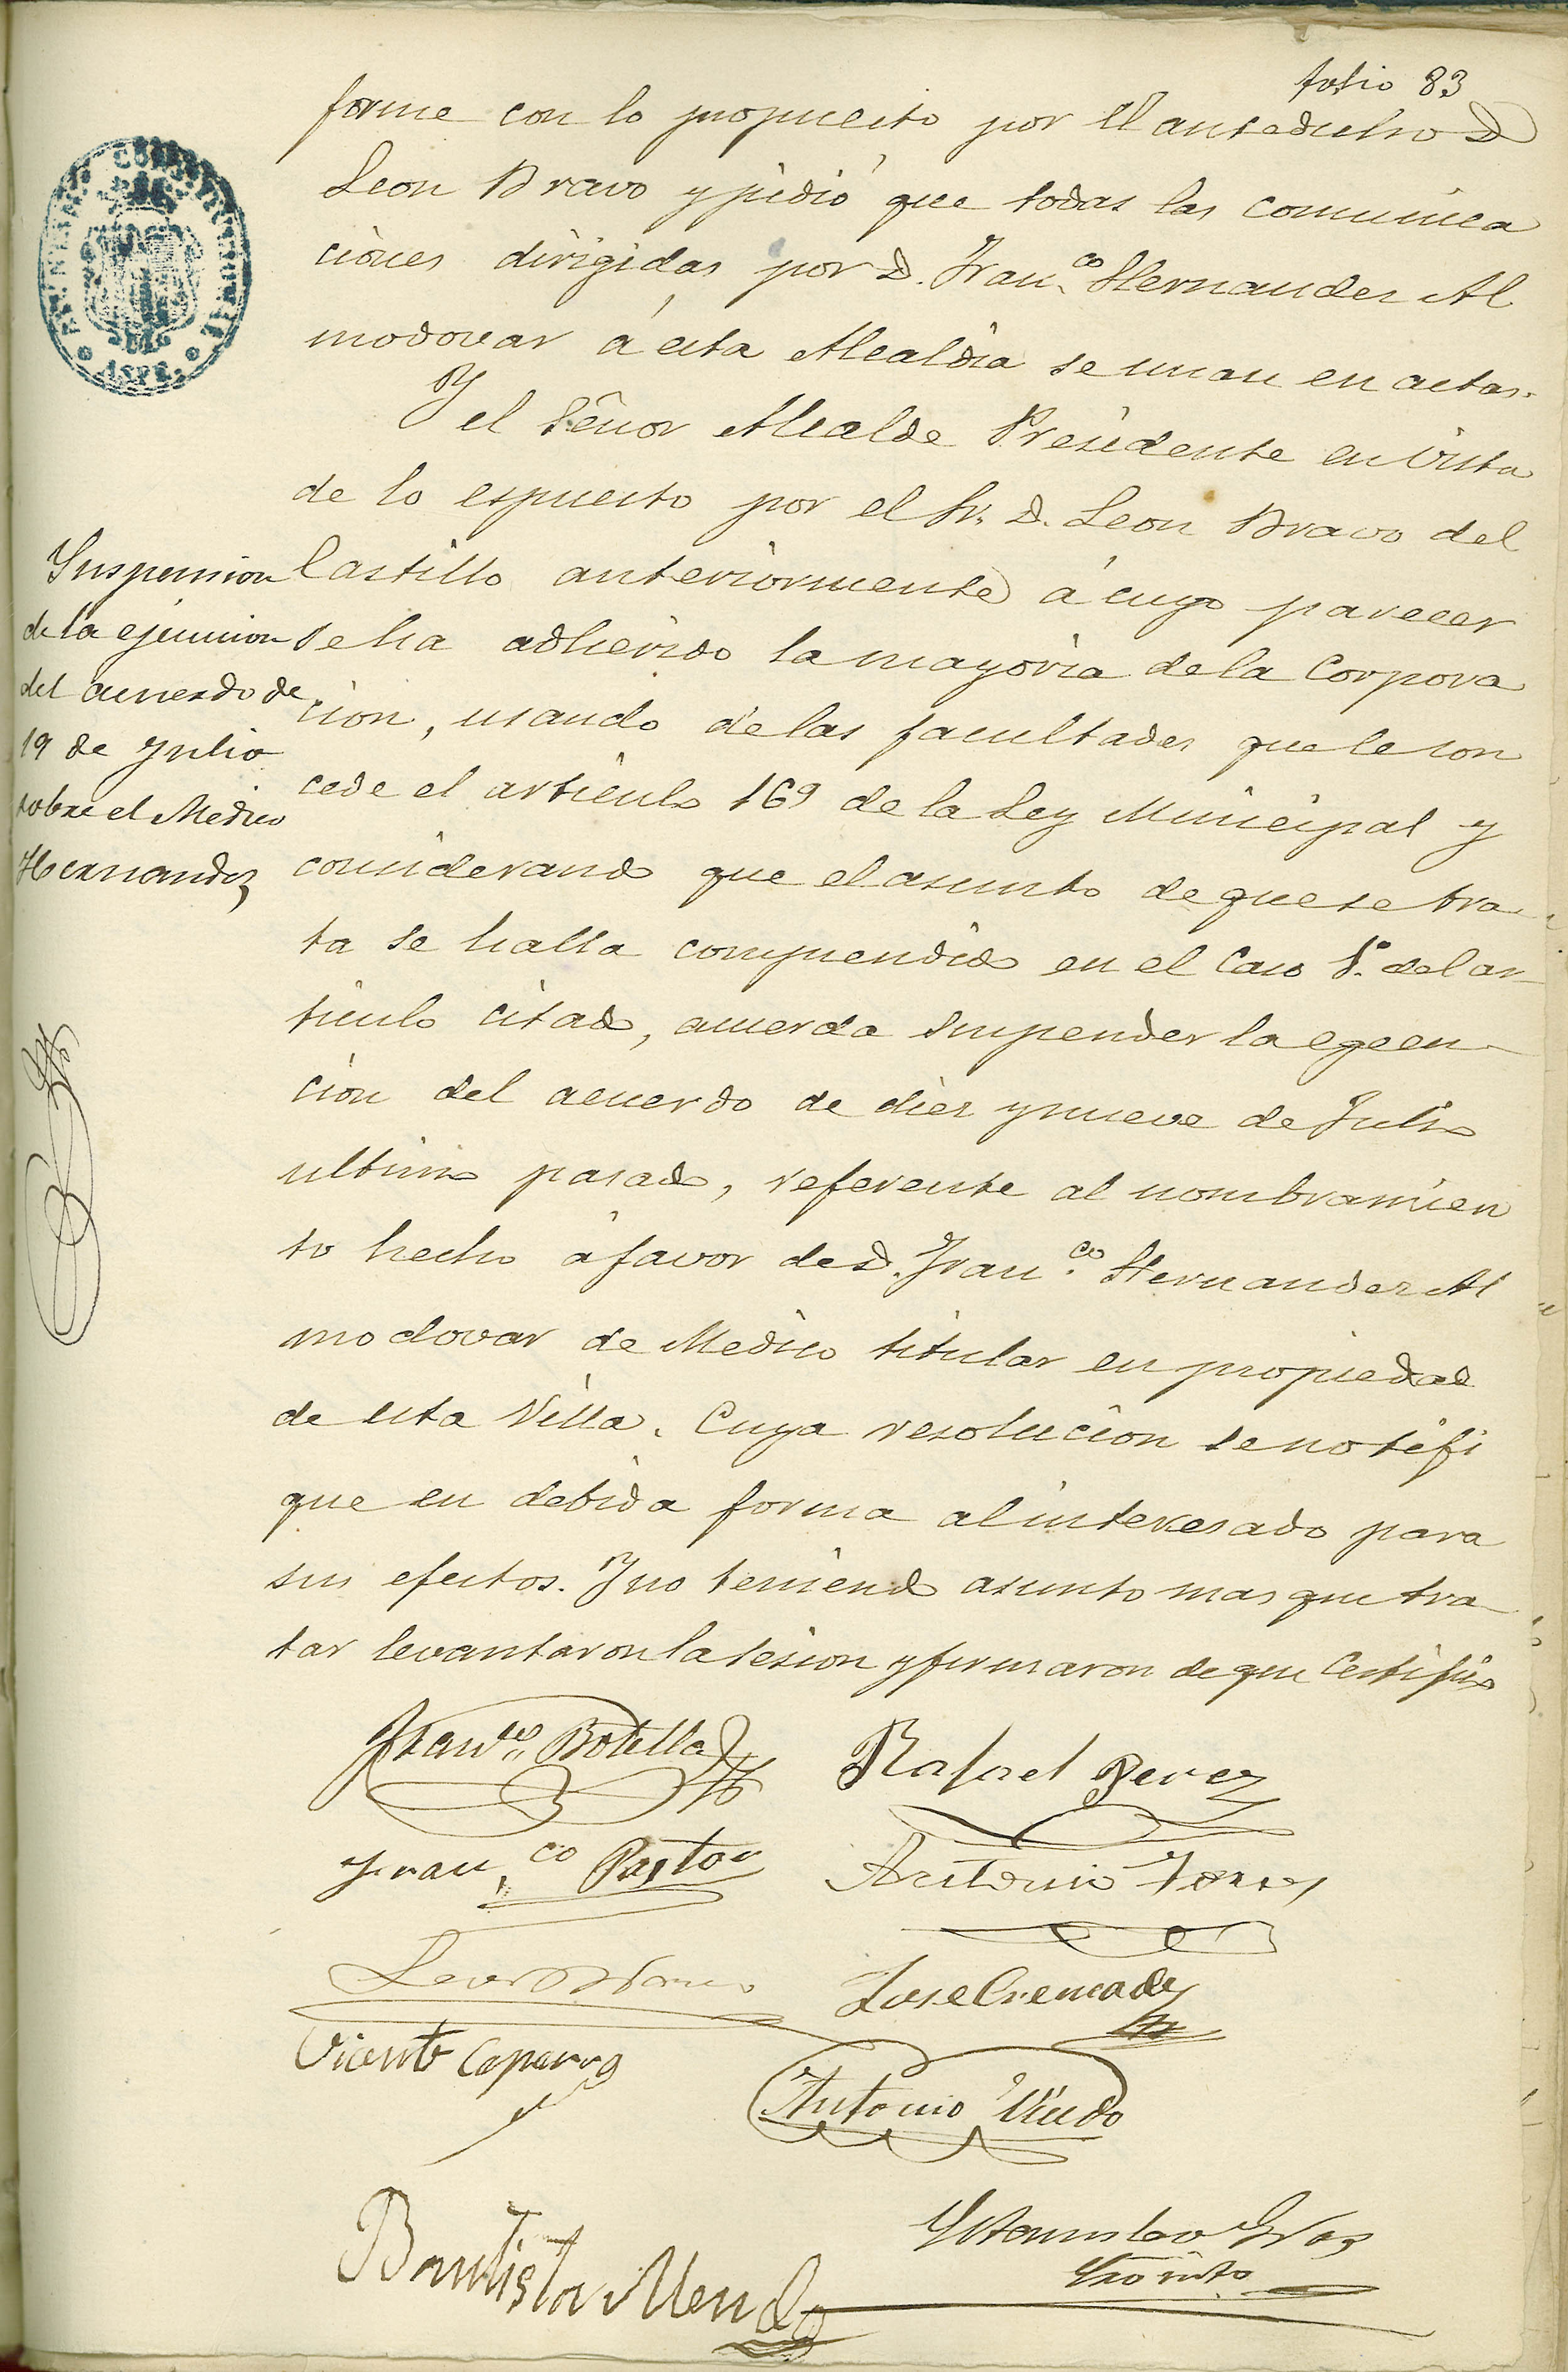 folio 83
forme con lo propuesto por el antedicho D
Leon Bravo y pidió que todas las comunica
ciones dirigidas por D. Fran.co Hernandez Al
modovar á esta Alcaldia se unan en actas.
Y el Señor Alcalde Presidente en vista
de lo espuesto por el Sr. D. Leon Bravo del
Castillo anteriormente á cuyo parecer
se ha adherido la mayoria de la Corpora
cion, usando de las facultades que le con
cede el articulo 169 de la Ley Municipal y
considerando que el asunto de que se tra
ta se halla comprendido en el Caso 1º del ar
ticulo citado, acuerda suspender la egecu-
cion del acuerdo de diez y nueve de Julio
ultimo pasado, referente al nombramien
to hecho á favor de D. Fran.co Hernandez Al
modovar de Medico titular en propiedad
de esta Villa. Cuya resolucion se notifi
que en debida forma al interesado para
sus efectos. Y no teniendo asunto mas que tra
tar levantaron la sesion y firmaron de que Certifico
Suspension
de la ejecucion
del acuerdo de
19 de Julio
sobre el Medico
Hernandez
Franco. Botella
Rafael Perez
Fran.co Pastor
Antonio
Leon Bravo
Jose Cremades
Vicente Caparros
Antonio
Bautista
Srio into
AYUNTAMIENTO CONSTITUCIONAL
DE
ASPE